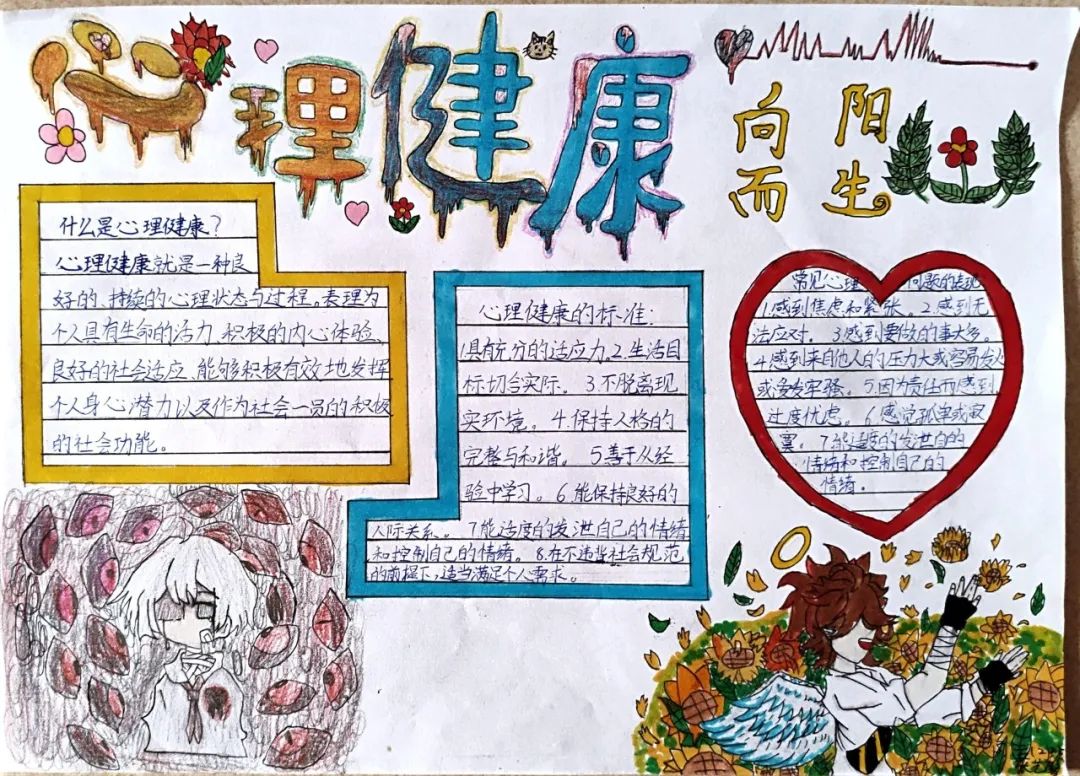 心理健康
向阳
而生
什么是心理健康?
心理健康就是一种良
好的、持续的心理状态与过程。表理为
个人具有生命的活力、积极的内心体验、
良好的社会适应、能够积极有效地发挥
个人身心潜力以及作为社会一员的积极
的社会功能。
心理健康的标准:
1具有充分的适应力.2.生活目
标切合实际。3.不脱离现
实环境。4.保持人格的
完整与和谐。5善于从经
验中学习。6.能保持良好的
人际关系。7能适度的发泄自己的情绪
和控制自己的情绪。8.在不违背社会规范
的前提下,适当满足个人需求。
常见心理问题的表现
1.感到焦虑和紧张。2.感到无
法应对。3感到要做的事太多。
4.感到来自他人的压力大或容易发火
或变牢骚。5.因为责任而感到
过度忧虑。6.感觉孤单或寂
寞。7.能适度的发泄自的
情绪和控制自己的
情绪.